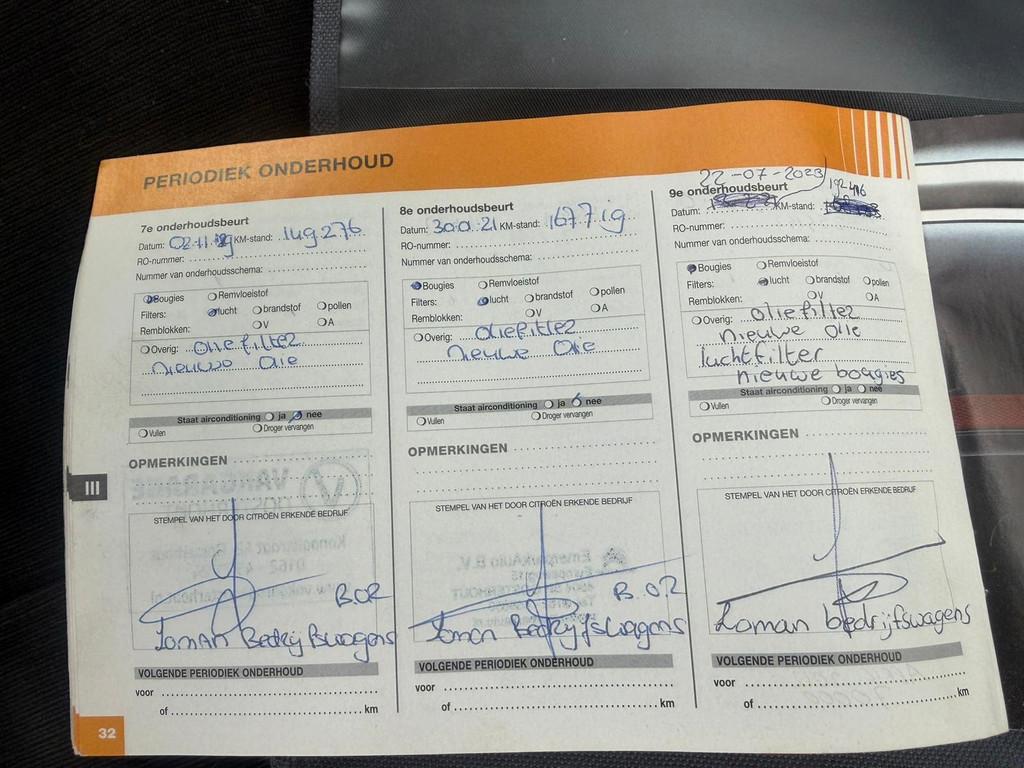 PERIODIEK ONDERHOUD
7e onderhoudsbeurt
Datum: KM-stand: 149276
RO-nummer:
Nummer van onderhoudsschema:
Bougies Remvloeistof
Filters: lucht brandstof pollen
Remblokken: V A
Overig: oliefilter
nieuwe olie
Staat airconditioning ja nee
Vullen Droger vervangen
OPMERKINGEN
STEMPEL VAN HET DOOR CITROËN ERKENDE BEDRIJF
Loman Bedrijfswagens
VOLGENDE PERIODIEK ONDERHOUD
voor
of km
8e onderhoudsbeurt
Datum: KM-stand:
RO-nummer:
Nummer van onderhoudsschema:
Bougies Remvloeistof
Filters: lucht brandstof pollen
Remblokken: V A
Overig: oliefilter
nieuwe olie
Staat airconditioning ja nee
Vullen Droger vervangen
OPMERKINGEN
STEMPEL VAN HET DOOR CITROËN ERKENDE BEDRIJF
Loman Bedrijfswagens
VOLGENDE PERIODIEK ONDERHOUD
voor
of km
22-07-2023 192416
9e onderhoudsbeurt
Datum: KM-stand:
RO-nummer:
Nummer van onderhoudsschema:
Bougies Remvloeistof
Filters: lucht brandstof pollen
Remblokken: V A
Overig: oliefilter
nieuwe olie
luchtfilter
nieuwe bougies
Staat airconditioning ja nee
Vullen Droger vervangen
OPMERKINGEN
STEMPEL VAN HET DOOR CITROËN ERKENDE BEDRIJF
Loman bedrijfswagens
VOLGENDE PERIODIEK ONDERHOUD
voor
of km
III
32